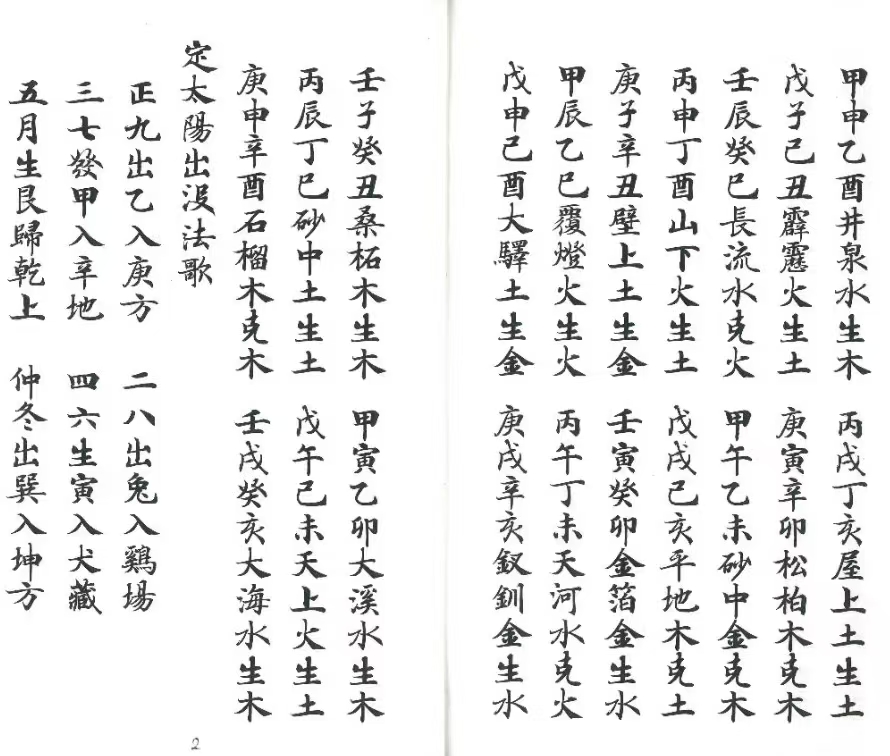 甲申乙酉井泉水生木　丙戌丁亥屋上土生土
戊子己丑霹靂火生土　庚寅辛卯松柏木克木
壬辰癸巳長流水克火　甲午乙未砂中金克木
丙申丁酉山下火生土　戊戌己亥平地木克土
庚子辛丑壁上土生金　壬寅癸卯金箔金生水
甲辰乙巳覆燈火生火　丙午丁未天河水克火
戊申己酉大驛土生金　庚戌辛亥釵釧金生水
壬子癸丑桑柘木生木　甲寅乙卯大溪水生木
丙辰丁巳砂中土生土　戊午己未天上火生土
庚申辛酉石榴木克木　壬戌癸亥大海水生木
定太陽出没法歌
正九出乙入庚方　二八出兔入鷄場
三七發甲入辛地　四六生寅入犬藏
五月生艮歸乾上　仲冬出巽入坤方
2